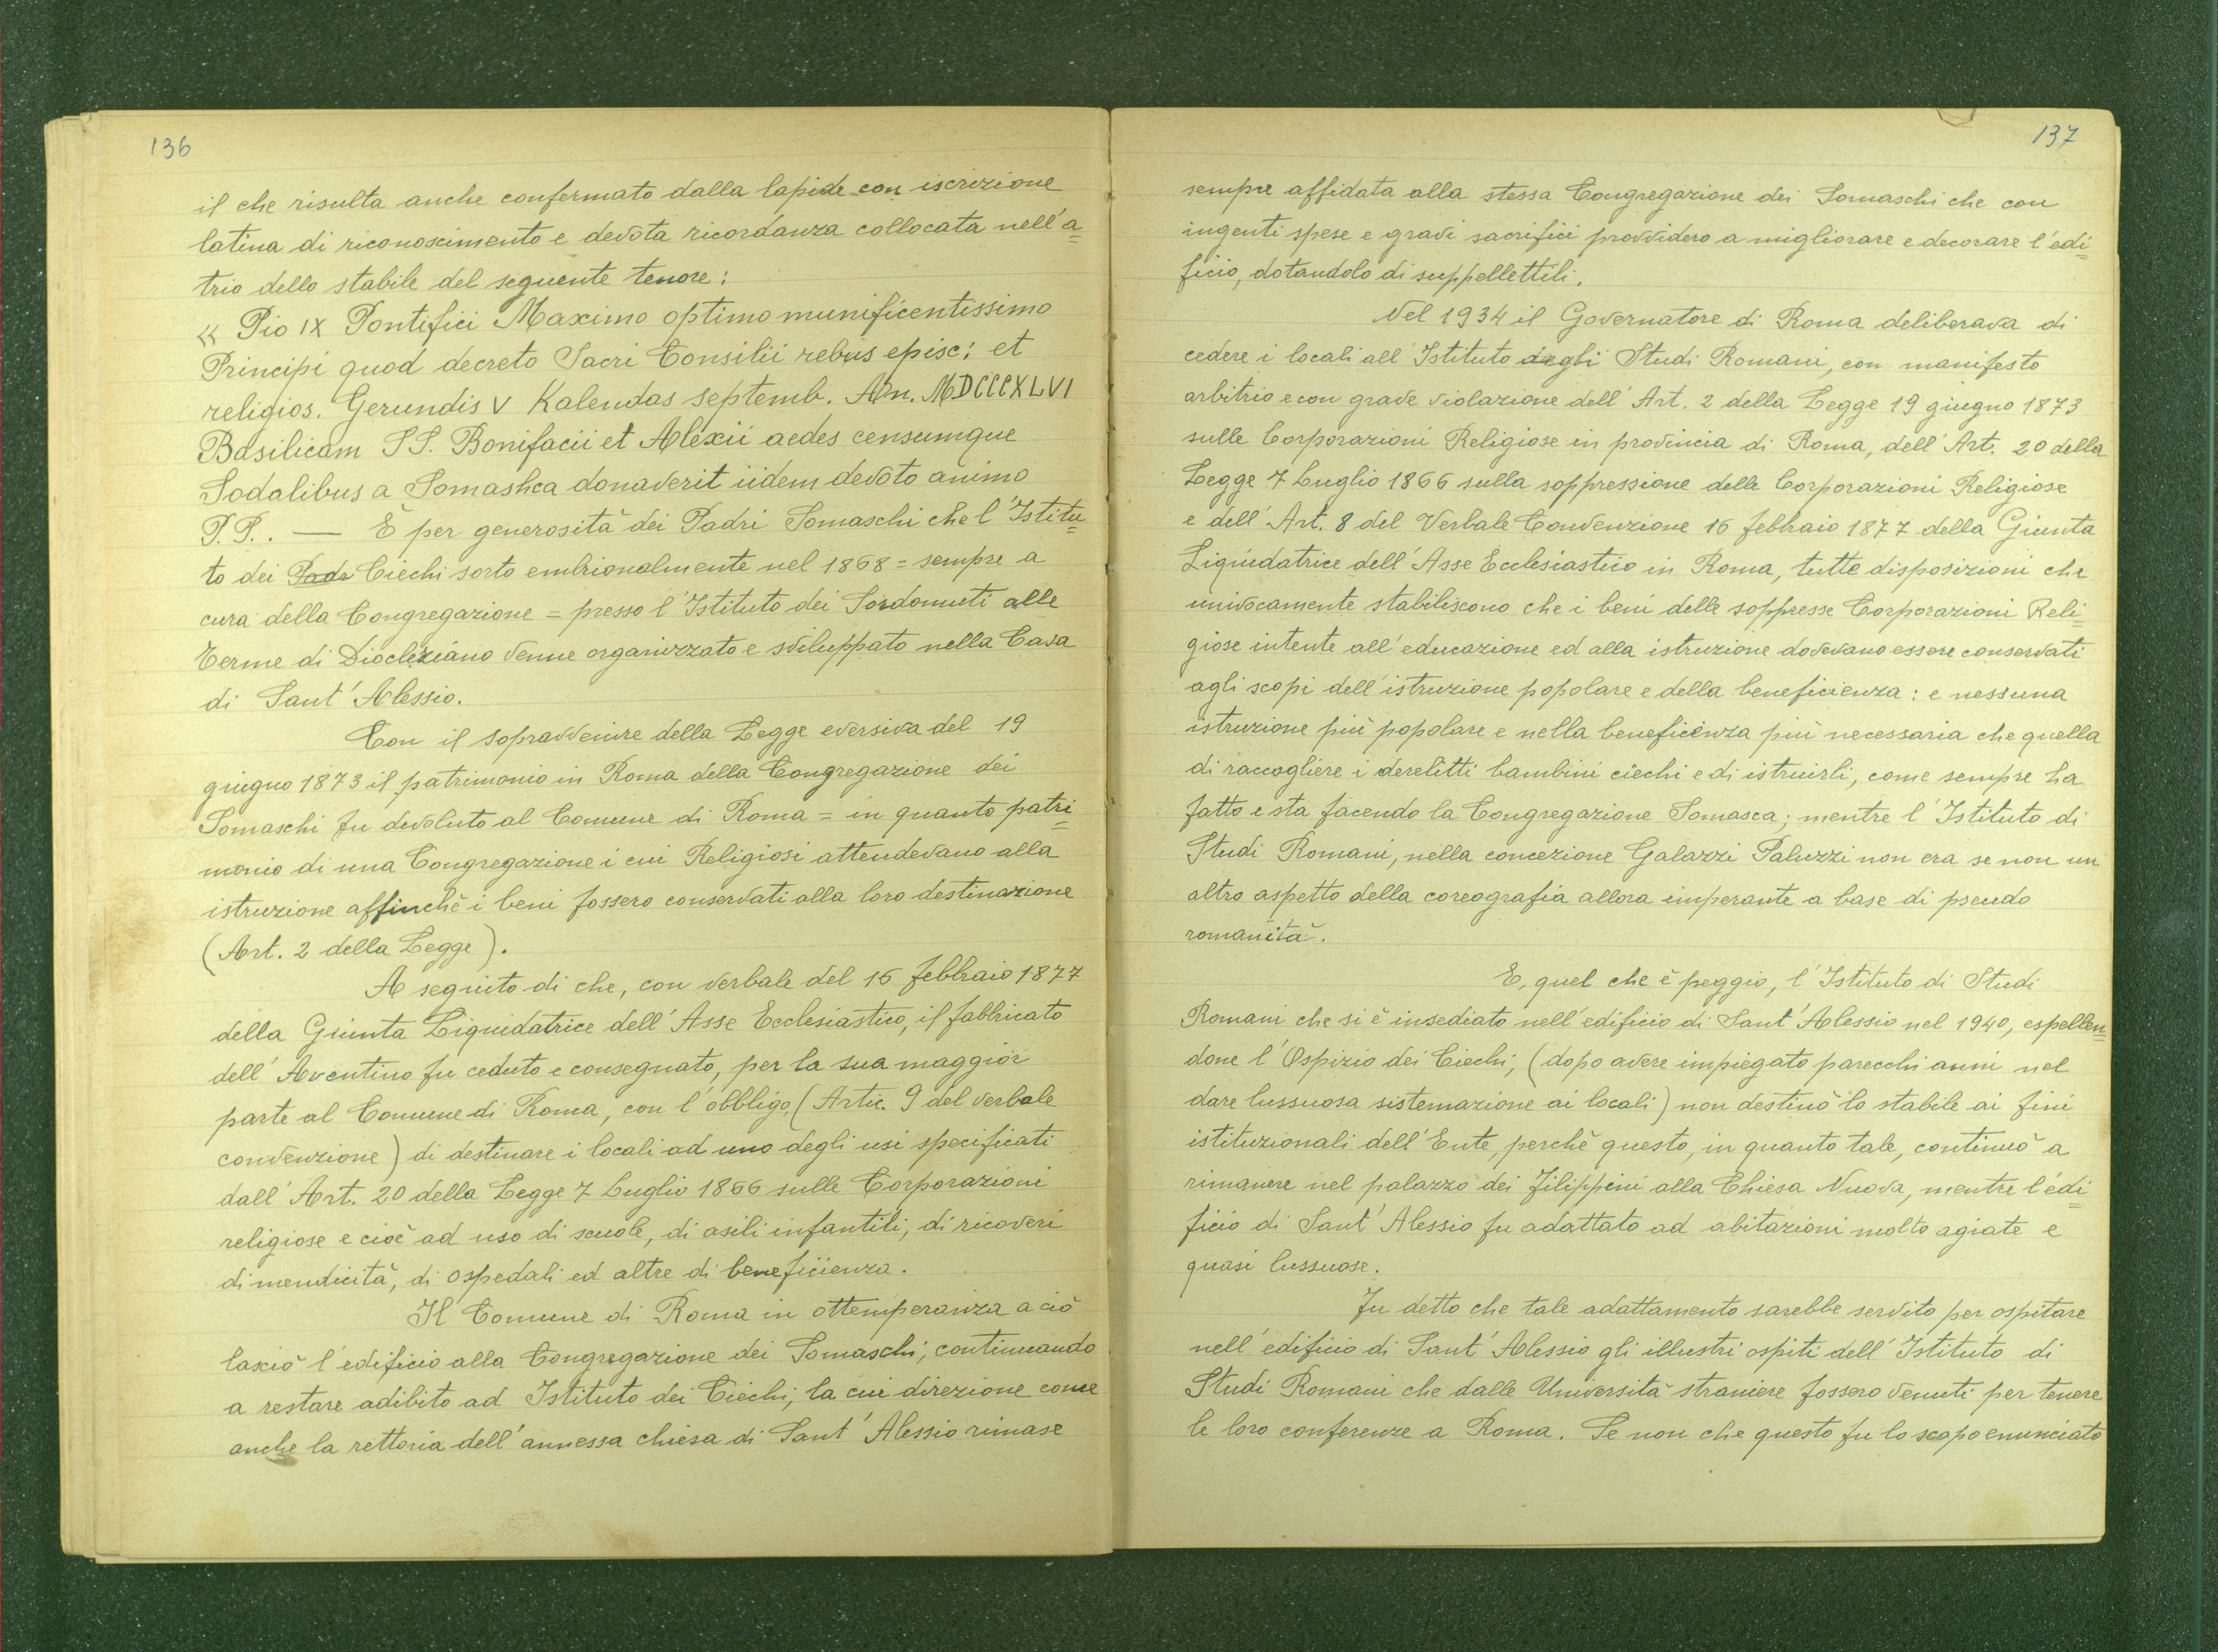 136
il che risulta anche confermato dalla lapide con iscrizione
latina di riconoscimento e devota ricordanza collocata nell'a=
trio dello stabile del seguente tenore:
« Pio IX Pontifici Maximo optimo munificentissimo
Principi quod decreto Sacri Consilii rebus episc: et
religios. Gerundis V Kalendas septemb. An. MDCCCXLVI
Basilicam SS. Bonifacii et Alexii aedes censumque
Sodalibus a Somasha donaverit iidem devoto animo
P.P.. — È per generosità dei Padri Somaschi che l'Istitu=
to dei Padr Ciechi sorto embrionalmente nel 1868 = sempre a
cura della Congregazione = presso l'Istituto dei Sordomuti alle
Terme di Diocleziano venne organizzato e sviluppato nella Casa
di Sant'Alessio.
Con il sopravvenire della Legge eversiva del 19
giugno 1873 il patrimonio in Roma della Congregazione dei
Somaschi fu devoluto al Comune di Roma = in quanto patri=
monio di una Congregazione i cui Religiosi attendevano alla
istruzione affinchè i beni fossero conservati alla loro destinazione
(Art. 2 della Legge).
A seguito di che, con verbale del 16 febbraio 1877
della Giunta Liquidatrice dell'Asse Ecclesiastico, il fabbricato
dell'Aventino fu ceduto e consegnato, per la sua maggior
parte al Comune di Roma, con l'obbligo (Artic. 9 del verbale
convenzione) di destinare i locali ad uno degli usi specificati
dall'Art. 20 della Legge 7 Luglio 1866 sulle Corporazioni
religiose e cioè ad uso di scuole, di asili infantili, di ricoveri
di mendicità, di ospedali ed altre di beneficienza.
Il Comune di Roma in ottemperanza a ciò
lasciò l'edificio alla Congregazione dei Somaschi, continuando
a restare adibito ad Istituto dei Ciechi, la cui direzione come
anche la rettoria dell'annessa chiesa di Sant'Alessio rimase
137
sempre affidata alla stessa Congregazione dei Somaschi che con
ingenti spese e gravi sacrifici provvidero a migliorare e decorare l'edi=
ficio, dotandolo di suppellettili.
Nel 1934 il Governatore di Roma deliberava di
cedere i locali all'Istituto degli Studi Romani, con manifesto
arbitrio e con grave violazione dell'Art. 2 della Legge 19 giugno 1873
sulle Corporazioni Religiose in provincia di Roma, dell'Art. 20 della
Legge 7 Luglio 1866 sulla soppressione delle Corporazioni Religiose
e dell'Art. 8 del Verbale Convenzione 16 febbraio 1877 della Giunta
Liquidatrice dell'Asse Ecclesiastico in Roma, tutte disposizioni che
univocamente stabiliscono che i beni delle soppresse Corporazioni Reli=
giose intente all'educazione ed alla istruzione dovevano essere conservati
agli scopi dell'istruzione popolare e della beneficienza: e nessuna
istruzione più popolare e nella beneficienza più necessaria che quella
di raccogliere i derelitti bambini ciechi e di istruirli, come sempre ha
fatto e sta facendo la Congregazione Somasca; mentre l'Istituto di
Studi Romani, nella concezione Galazzi Paluzzi non era se non un
altro aspetto della coreografia allora imperante a base di pseudo
romanità.
E, quel che è peggio, l'Istituto di Studi
Romani che si è insediato nell'edificio di Sant'Alessio nel 1940, espellen=
done l'Ospizio dei Ciechi, (dopo avere impiegato parecchi anni nel
dare lussuosa sistemazione ai locali) non destinò lo stabile ai fini
istituzionali dell'Ente, perchè questo, in quanto tale, continuò a
rimanere nel palazzo dei Filippini alla Chiesa Nuova, mentre l'edi=
ficio di Sant'Alessio fu adattato ad abitazioni molto agiate e
quasi lussuose.
Fu detto che tale adattamento sarebbe servito per ospitare
nell'edificio di Sant'Alessio gli illustri ospiti dell'Istituto di
Studi Romani che dalle Università straniere fossero venuti per tenere
le loro conferenze a Roma. Se non che questo fu lo scopo enunciato